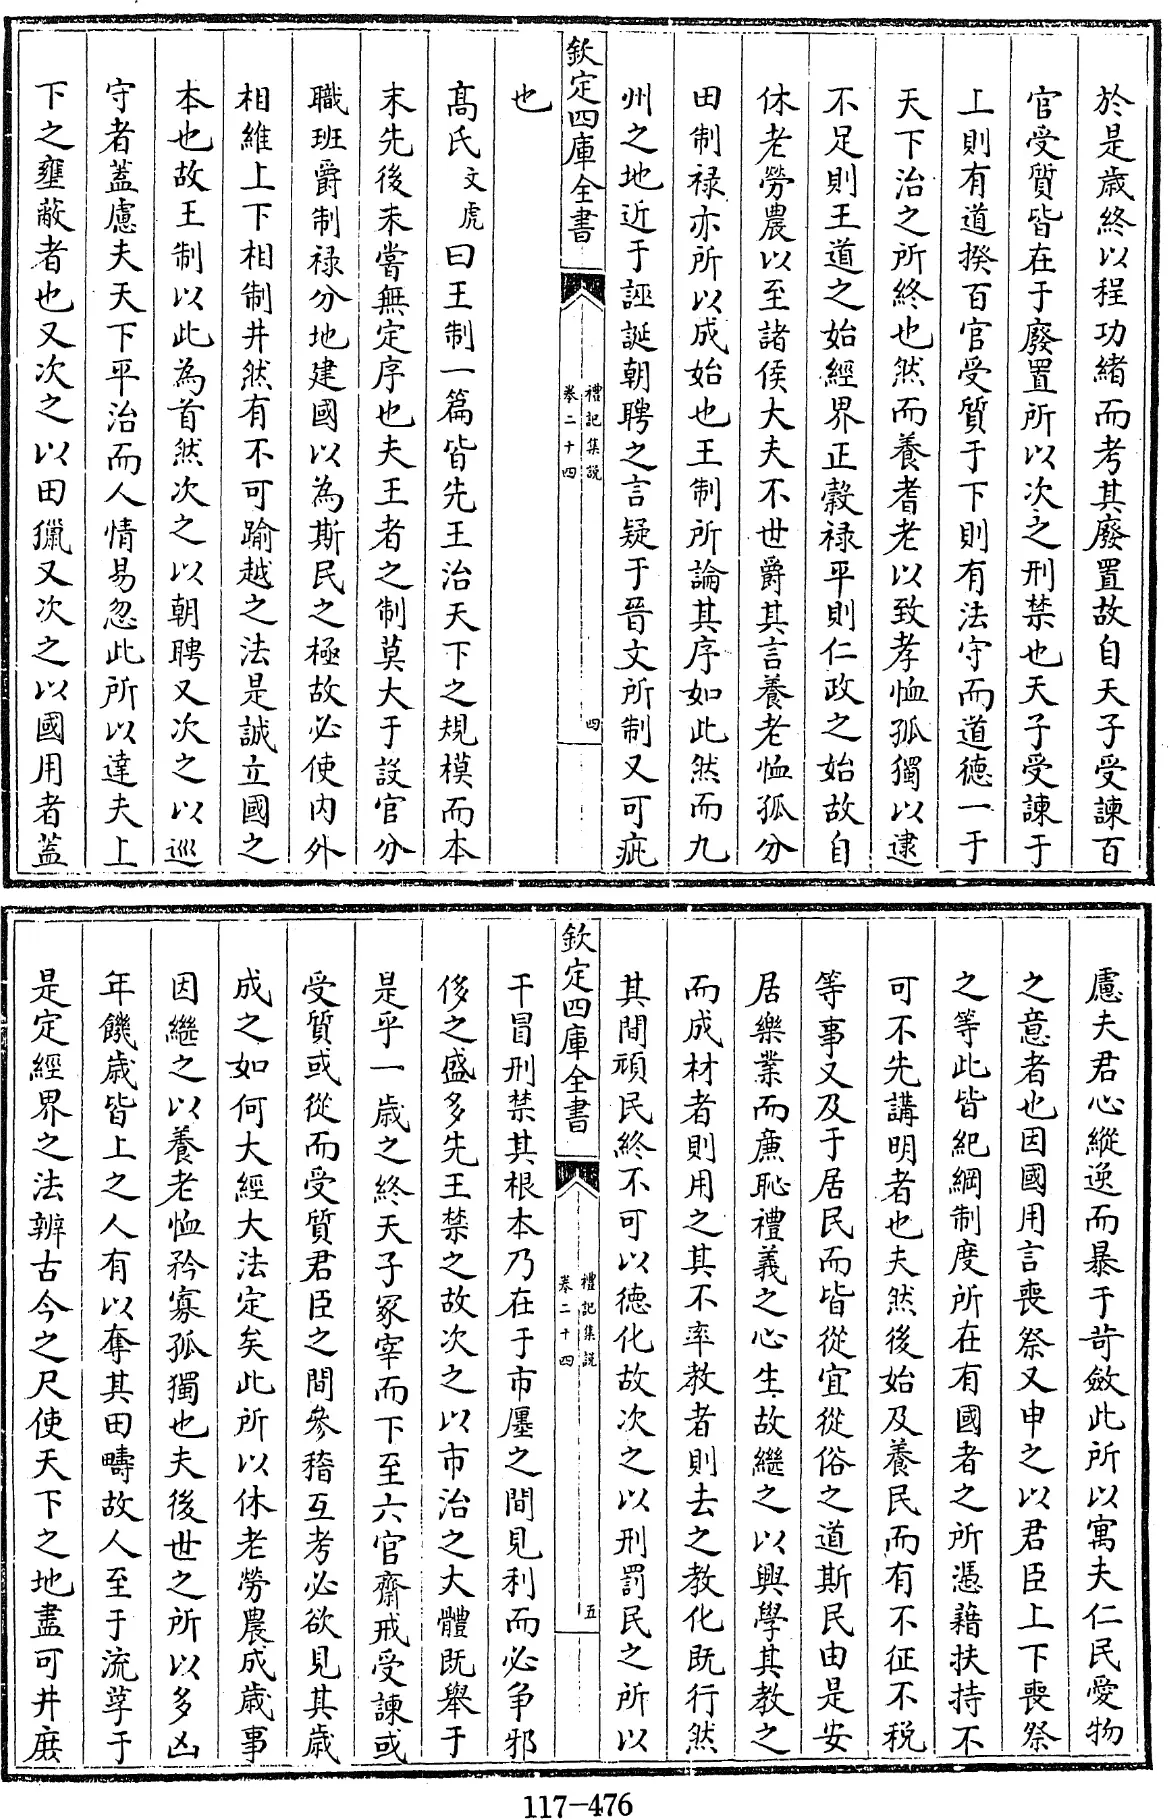 於是歲終以程功緒而考其廢置故自天子受諫百
官受質皆在于廢置所以次之刑禁也天子受諫于
上則有道揆百官受質于下則有法守而道德一于
天下治之所終也然而養耆老以致孝恤孤獨以逮
不足則王道之始經界正穀禄平則仁政之始故自
休老勞農以至諸侯大夫不世爵其言養老恤孤分
田制禄亦所以成始也王制所論其序如此然而九
州之地近于誣誕朝聘之言疑于晉文所制又可疵
欽定四庫全書
禮記集説
卷二十四
四
也
髙氏文虎曰王制一篇皆先王治天下之規模而本
末先後未嘗無定序也夫王者之制莫大于設官分
職班爵制禄分地建國以為斯民之極故必使内外
相維上下相制井然有不可踰越之法是誠立國之
本也故王制以此為首然次之以朝聘又次之以巡
守者蓋慮夫天下平治而人情易忽此所以達夫上
下之壅蔽者也又次之以田獵又次之以國用者蓋
慮夫君心縱逸而暴于苛斂此所以寓夫仁民愛物
之意者也因國用言喪祭又申之以君臣上下喪祭
之等此皆紀綱制度所在有國者之所憑藉扶持不
可不先講明者也夫然後始及養民而有不征不税
等事又及于居民而皆從宜從俗之道斯民由是安
居樂業而廉恥禮義之心生故繼之以興學其教之
而成材者則用之其不率教者則去之教化既行然
其間頑民終不可以德化故次之以刑罰民之所以
欽定四庫全書
禮記集説
卷二十四
五
干冒刑禁其根本乃在于市廛之間見利而必争邪
侈之盛多先王禁之故次之以市治之大體既舉于
是乎一歲之終天子冢宰而下至六官齋戒受諫或
受質或從而受質君臣之間參稽互考必欲見其歲
成之如何大經大法定矣此所以休老勞農成歲事
因繼之以養老恤矜寡孤獨也夫後世之所以多凶
年饑歲皆上之人有以奪其田疇故人至于流莩于
是定經界之法辨古今之尺使天下之地盡可井庶
117-476